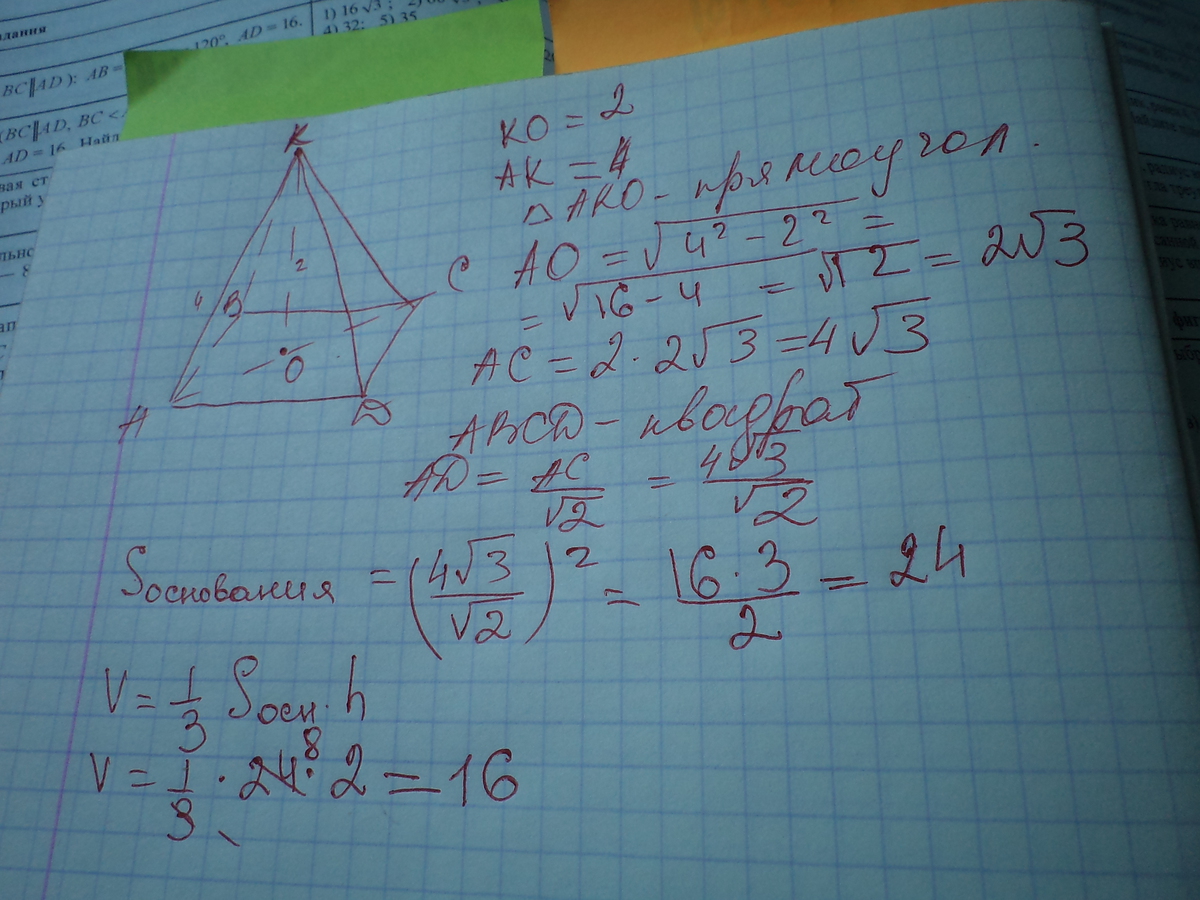 дания
120°, AD = 16.
1) 16√3;
4) 32; 5) 35
BC∥AD): AB =
(BC∥AD, BC <
AD = 16. Найд
K
2
4
B
C
O
A
D
KO = 2
AK = 4
△ AKO - прямоугол.
AO = √4² - 2² =
= √16 - 4 = √12 = 2√3
AC = 2 · 2√3 = 4√3
ABCD - квадрат
AD = AC/√2 = 4√3/√2
Sоснования = (4√3/√2)² = 16·3/2 = 24
V = 1/3 Sосн. h
V = 1/3 · 24 8 · 2 = 16